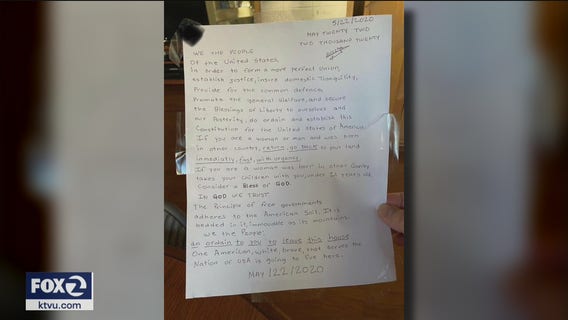 5/22/2020
MAY TWENTY TWO
TWO THOUSAND TWENTY
WE THE PEOPLE
Of the United States,
In order to form a more perfect Union,
establish justice, insure domestic Tranquility,
Provide for the common defence,
Promote the general Welfare, and secure
the Blessings of Liberty to ourselves and
our Posterity, do ordain and establish this
Constitution for the United States of America.
If you are a woman or man and was born
in other country, return, go back to your land
immediatly, fast, with urgency.
If you are a woman was born in other Country
takes your children with you, under 12 years old.
Consider a Bless of GOD.
IN GOD WE TRUST
The Principle of free governments
adheres to the American Soil. It is
bedded in it, immovable as its mountains.
We the People:
an ordain to you to leave this house
One American, white, brave, that serves the
Nation of USA is going to live here.
MAY/22/2020
FOX 2
ktvu.com